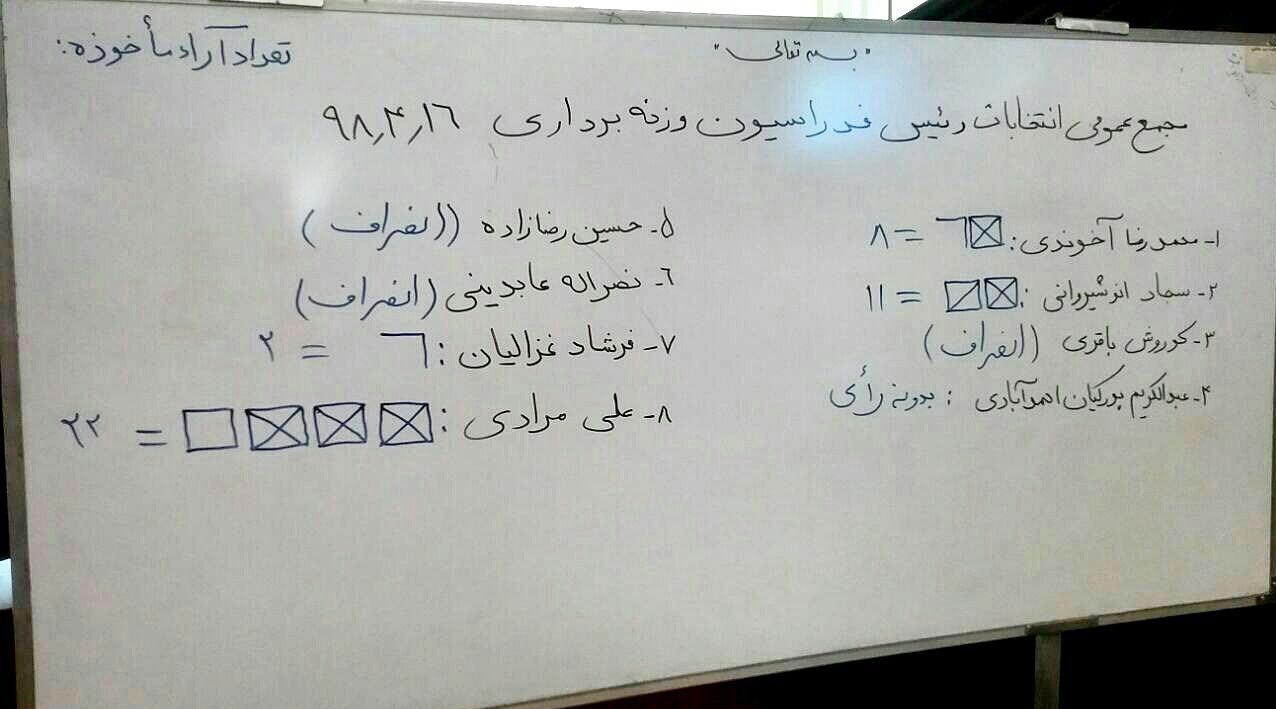 "بسمه تعالی"
تعداد آراء مأخوذه:
مجمع عمومی انتخابات رئیس فدراسیون وزنه برداری ۹۸٫۴٫۱۶
۱- محمدرضا آخوندی: = ۸
۲- سجاد انوشیروانی: = ۱۱
۳- کوروش باقری (انصراف)
۴- عبدالکریم پورکیان احمدآبادی: بدون رأی
۵- حسین رضازاده ((انصراف)
۶- نصراله عابدینی (انصراف)
۷- فرشاد غزالیان: = ۲
۸- علی مرادی: = ۲۲